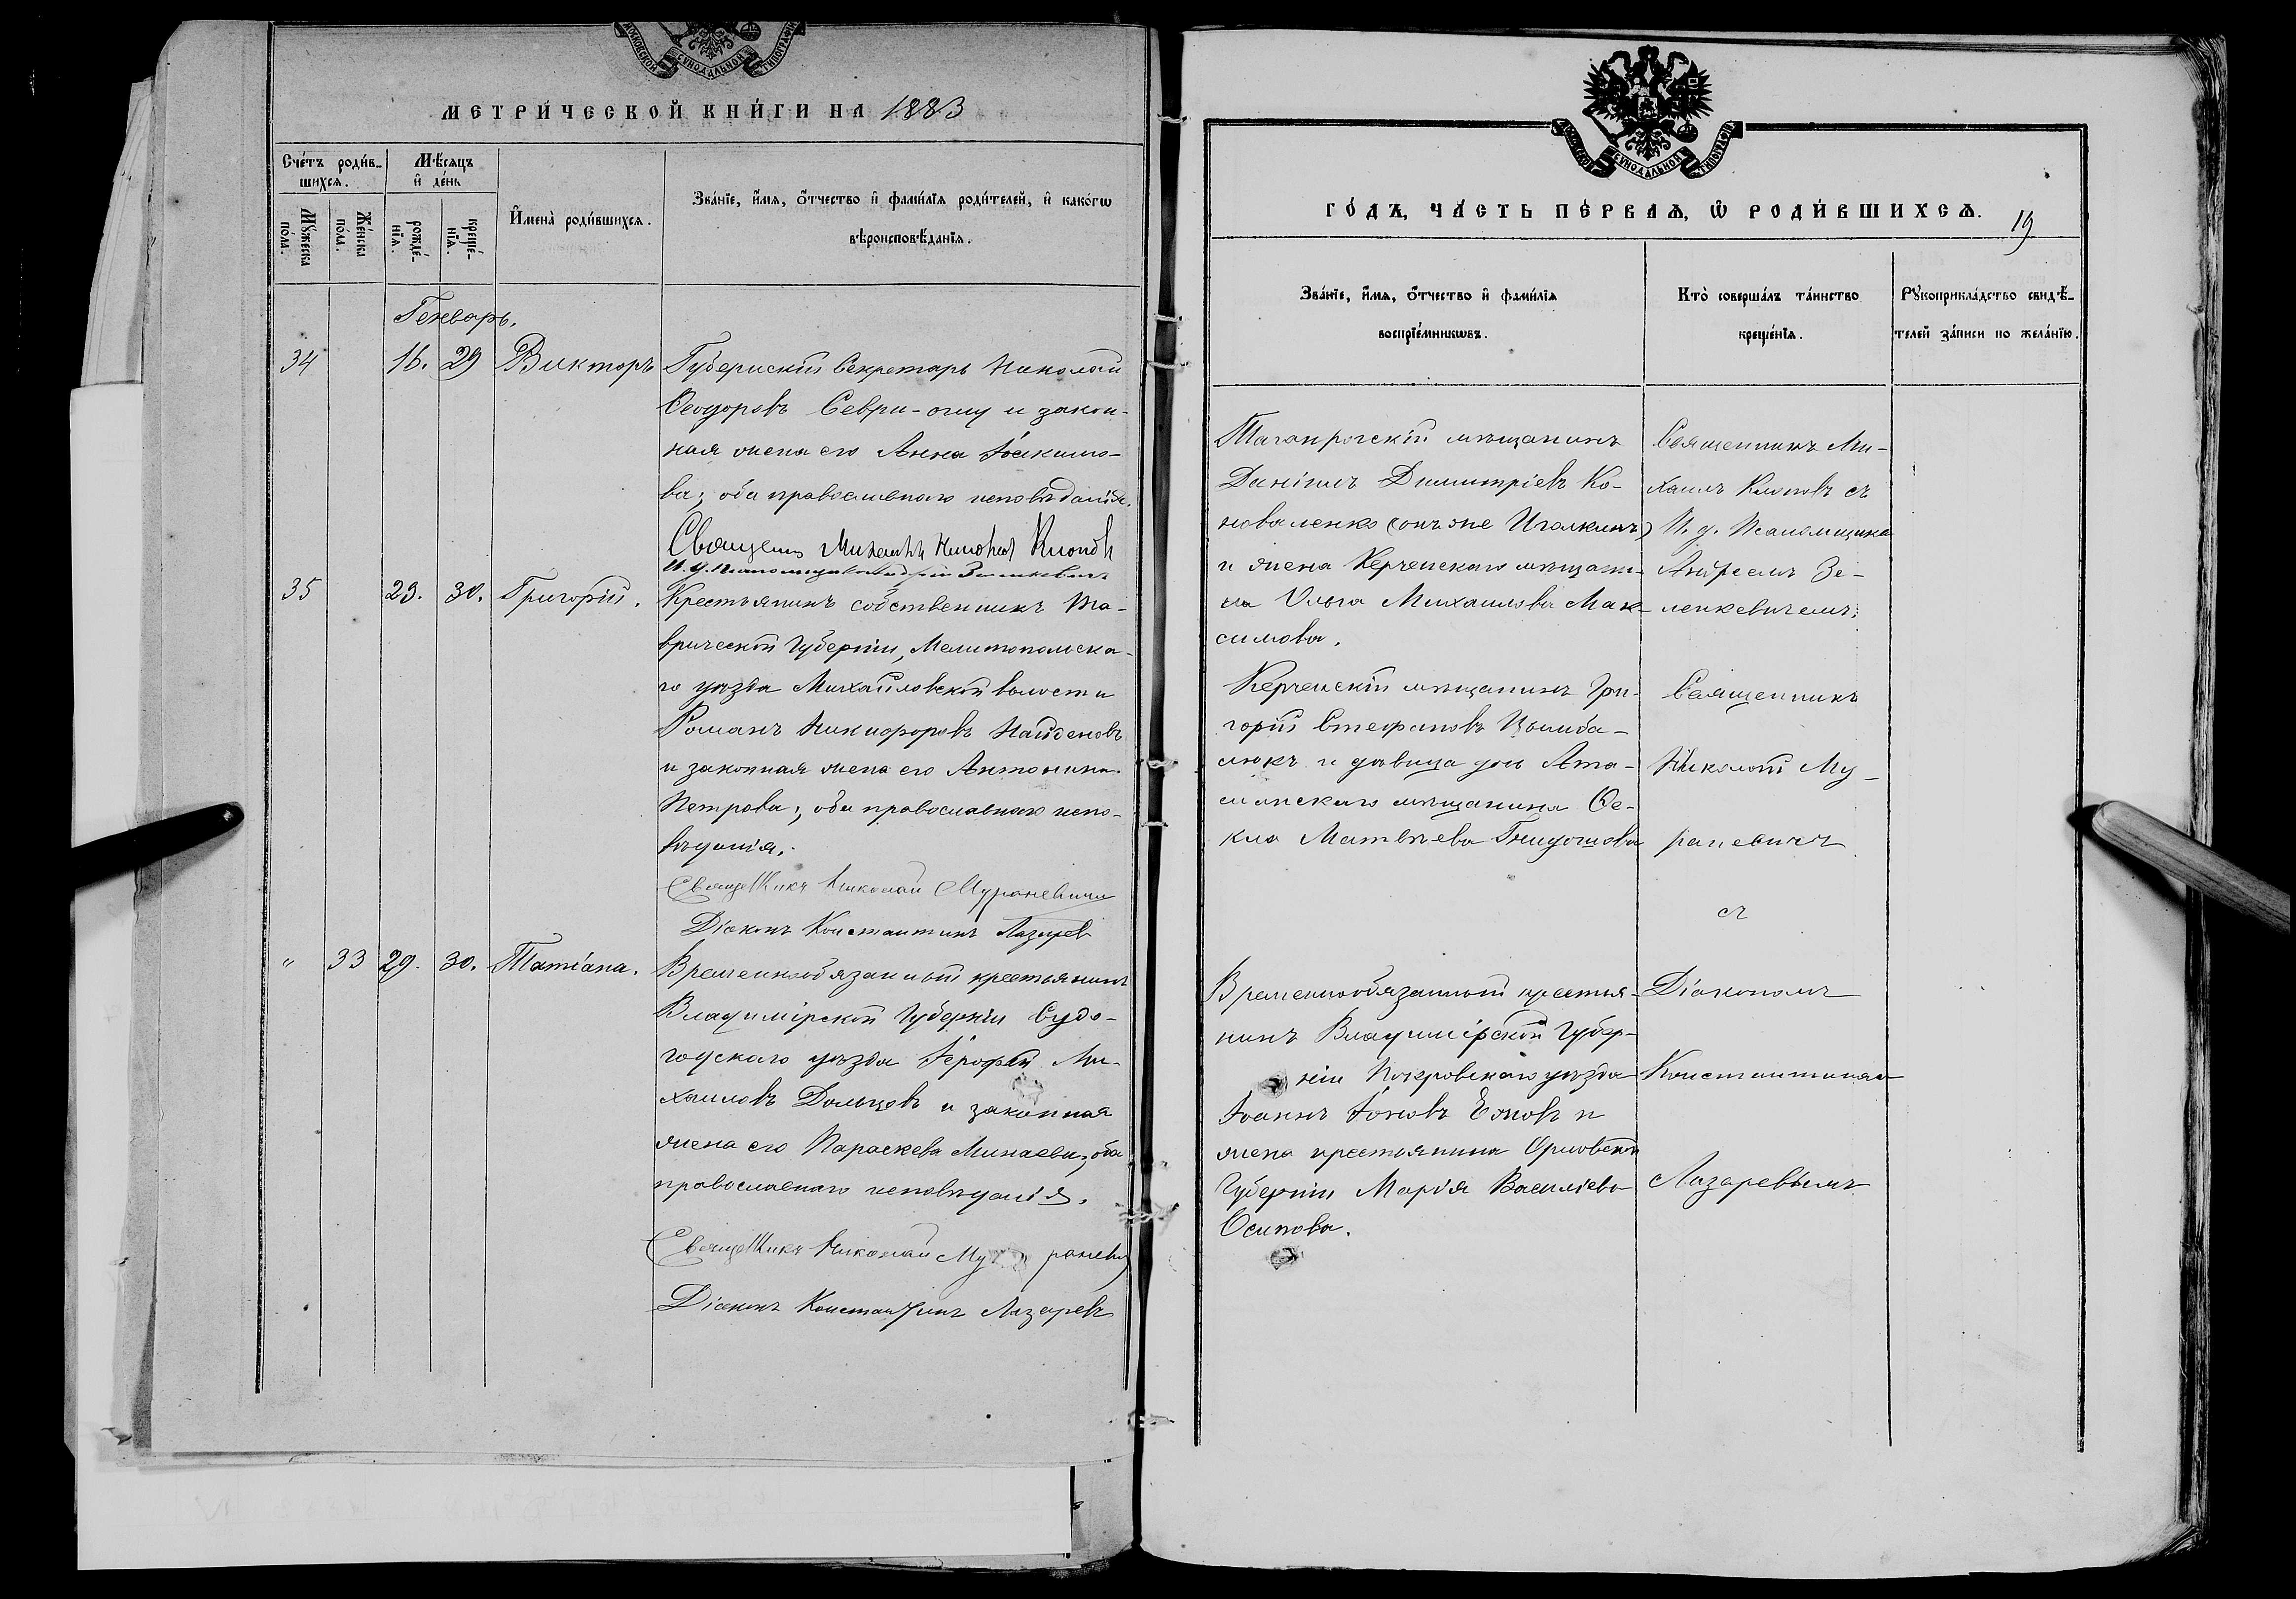 МОСКОВСКОЙ СѴНОДАЛЬНОЙ ТИПОГРАФІИ
МЕТРИ́ЧЕСКОЙ КНИ́ГИ НА 1883
Сче́тъ роди́в-
шихсѧ.
Мѣ́сѧцъ
и҆ де́нь
Мꙋ́жеска
по́ла.
Же́нска
по́ла.
рожде́-
нїѧ.
креще́-
нїѧ.
И҆мена̀ роди́вшихсѧ.
Зва́нїе, и҆́мѧ, ѻ҆́тчество и҆ фами́лїѧ роди́телей, и҆ како́гѡ
вѣроисповѣ́данїѧ.
Генварь.
34 16. 29 Викторъ Губернскій Секретарь Николай
Ѳеодоровъ Севри-оглу и закон-
ная жена его Анна Іоакимо-
ва; оба православнаго исповѣданія.
Священ Михаилъ Клоповъ
И. д. Псаломщика Андрей Зеленкевичъ
35 23. 30. Григорій. Крестьянинъ собственникъ Та-
врической Губерніи, Мелитопольска-
го уѣзда Михайловской волости
Романъ Никифоровъ Найденовъ
и законная жена его Антонина
Петрова; оба православнаго испо-
вѣданія.
Священникъ Николай Мураневичъ
Діаконъ Константинъ Лазарев
" 33 29. 30. Татіана. Временнообязанный крестьянинъ
Владимірской Губерніи Судо-
годскаго уѣзда Іерофей Ми-
хаиловъ Дольцовъ и законная
жена его Параскева Минаева; оба
православнаго исповѣданія.
Священникъ Николай Му раневич
Діаконъ Константинъ Лазаревъ
МОСКОВСКОЙ СѴНОДАЛЬНОЙ ТИПОГРАФІИ
ГО́ДЪ, ЧА́СТЬ ПЕ́РВАѦ, Ѡ҆ РОДИ́ВШИХСѦ.
19
Зва́нїе, и҆́мѧ, ѻ҆́тчество и҆ фами́лїѧ
воспрїе́мникѡвъ.
Кто̀ соверша́лъ та́инство
креще́нїѧ.
Рꙋкоприкла́дство свидѣ́-
телей за́писи по жела́нїю.
Таганрогскій мѣщанинъ
Даніилъ Димитріевъ Ко-
новаленко (онъ же Иголкинъ)
и жена Керченскаго мѣщани-
на Ольга Михаилова Мак-
симова.
Священникъ Ми-
хаилъ Клоповъ съ
И. д. Псаломщика
Андреемъ Зе-
ленкевичемъ.
Керченскій мѣщанинъ Гри-
горій Стефановъ Цымба-
люкъ и дѣвица дочь Ата-
манскаго мѣщанина Ѳе-
кла Матвѣева
Священникъ
Николай Му-
раневичъ
съ
Временнообязанный крестья-
нинъ Владимірской Губер-
ніи Покровскаго уѣзда
Іоаннъ Іоновъ Ежовъ и
жена крестьянина Орловской
Губерніи Марія Василіева
Осипова.
Діакономъ
Константиномъ
Лазаревымъ